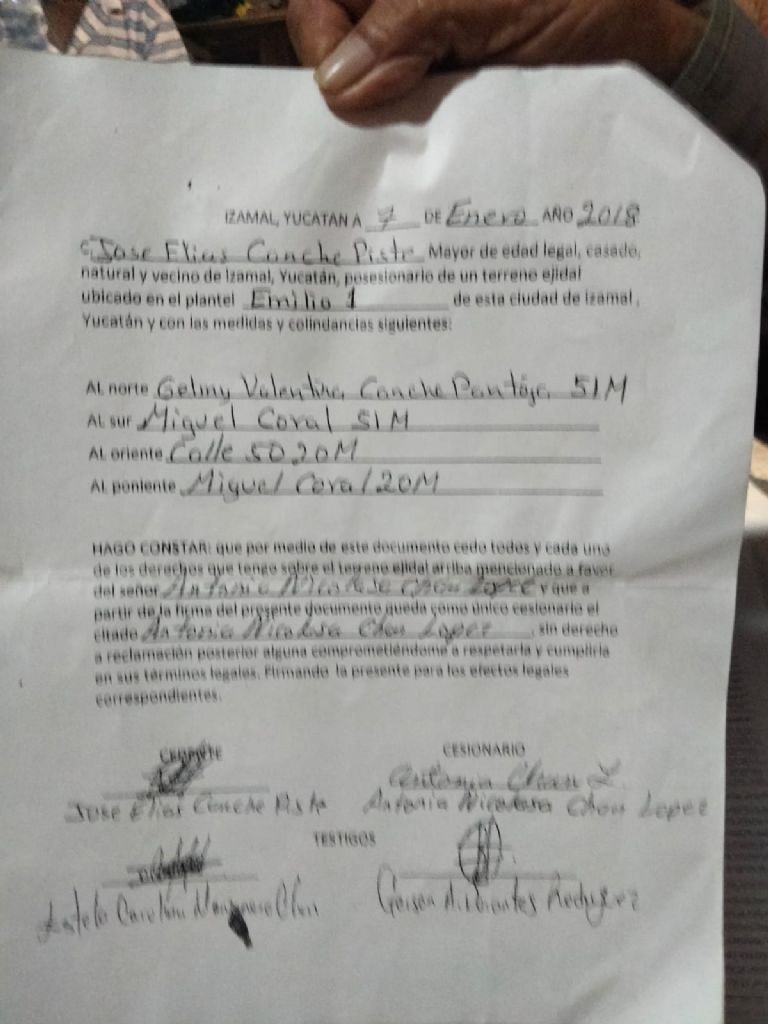 IZAMAL, YUCATAN A 7 DE Enero AÑO 2018
C. Jose Elias Canche Piste Mayor de edad legal, casado,
natural y vecino de Izamal, Yucatán, posesionario de un terreno ejidal
ubicado en el plantel Emilio 1 de esta ciudad de Izamal,
Yucatán y con las medidas y colindancias siguientes:
AL norte Gelmy Valentina Canche Pantoja 51M
AL sur Miguel Coral 51M
AL oriente Calle 50 20M
AL poniente Miguel Coral 20M
HAGO CONSTAR: que por medio de este documento cedo todos y cada uno
de los derechos que tengo sobre el terreno ejidal arriba mencionado a favor
del señor Antonia Nicolasa Chan Lopez y que a
partir de la firma del presente documento queda como único cesionario el
citado Antonia Nicolasa Chan Lopez, sin derecho
a reclamación posterior alguna comprometiéndome a respetarla y cumplirla
en sus términos legales. Firmando la presente para los efectos legales
correspondientes.
CEDENTE CESIONARIO
Antonia Chan L
Jose Elias Canche Piste Antonia Nicolasa Chan Lopez
TESTIGOS